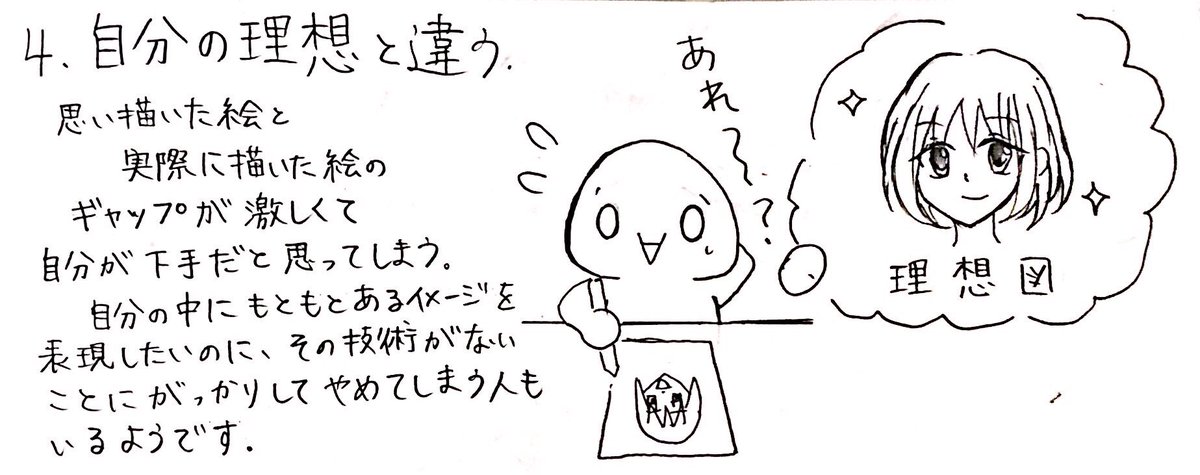 4、自分の理想と違う.
思い描いた絵と
実際に描いた絵の
ギャップが激しくて
自分が下手だと思ってしまう。
自分の中にもともとあるイメージを
表現したいのに、その技術がない
ことにがっかりしてやめてしまう人も
いるようです.
あれ〜?
理想図